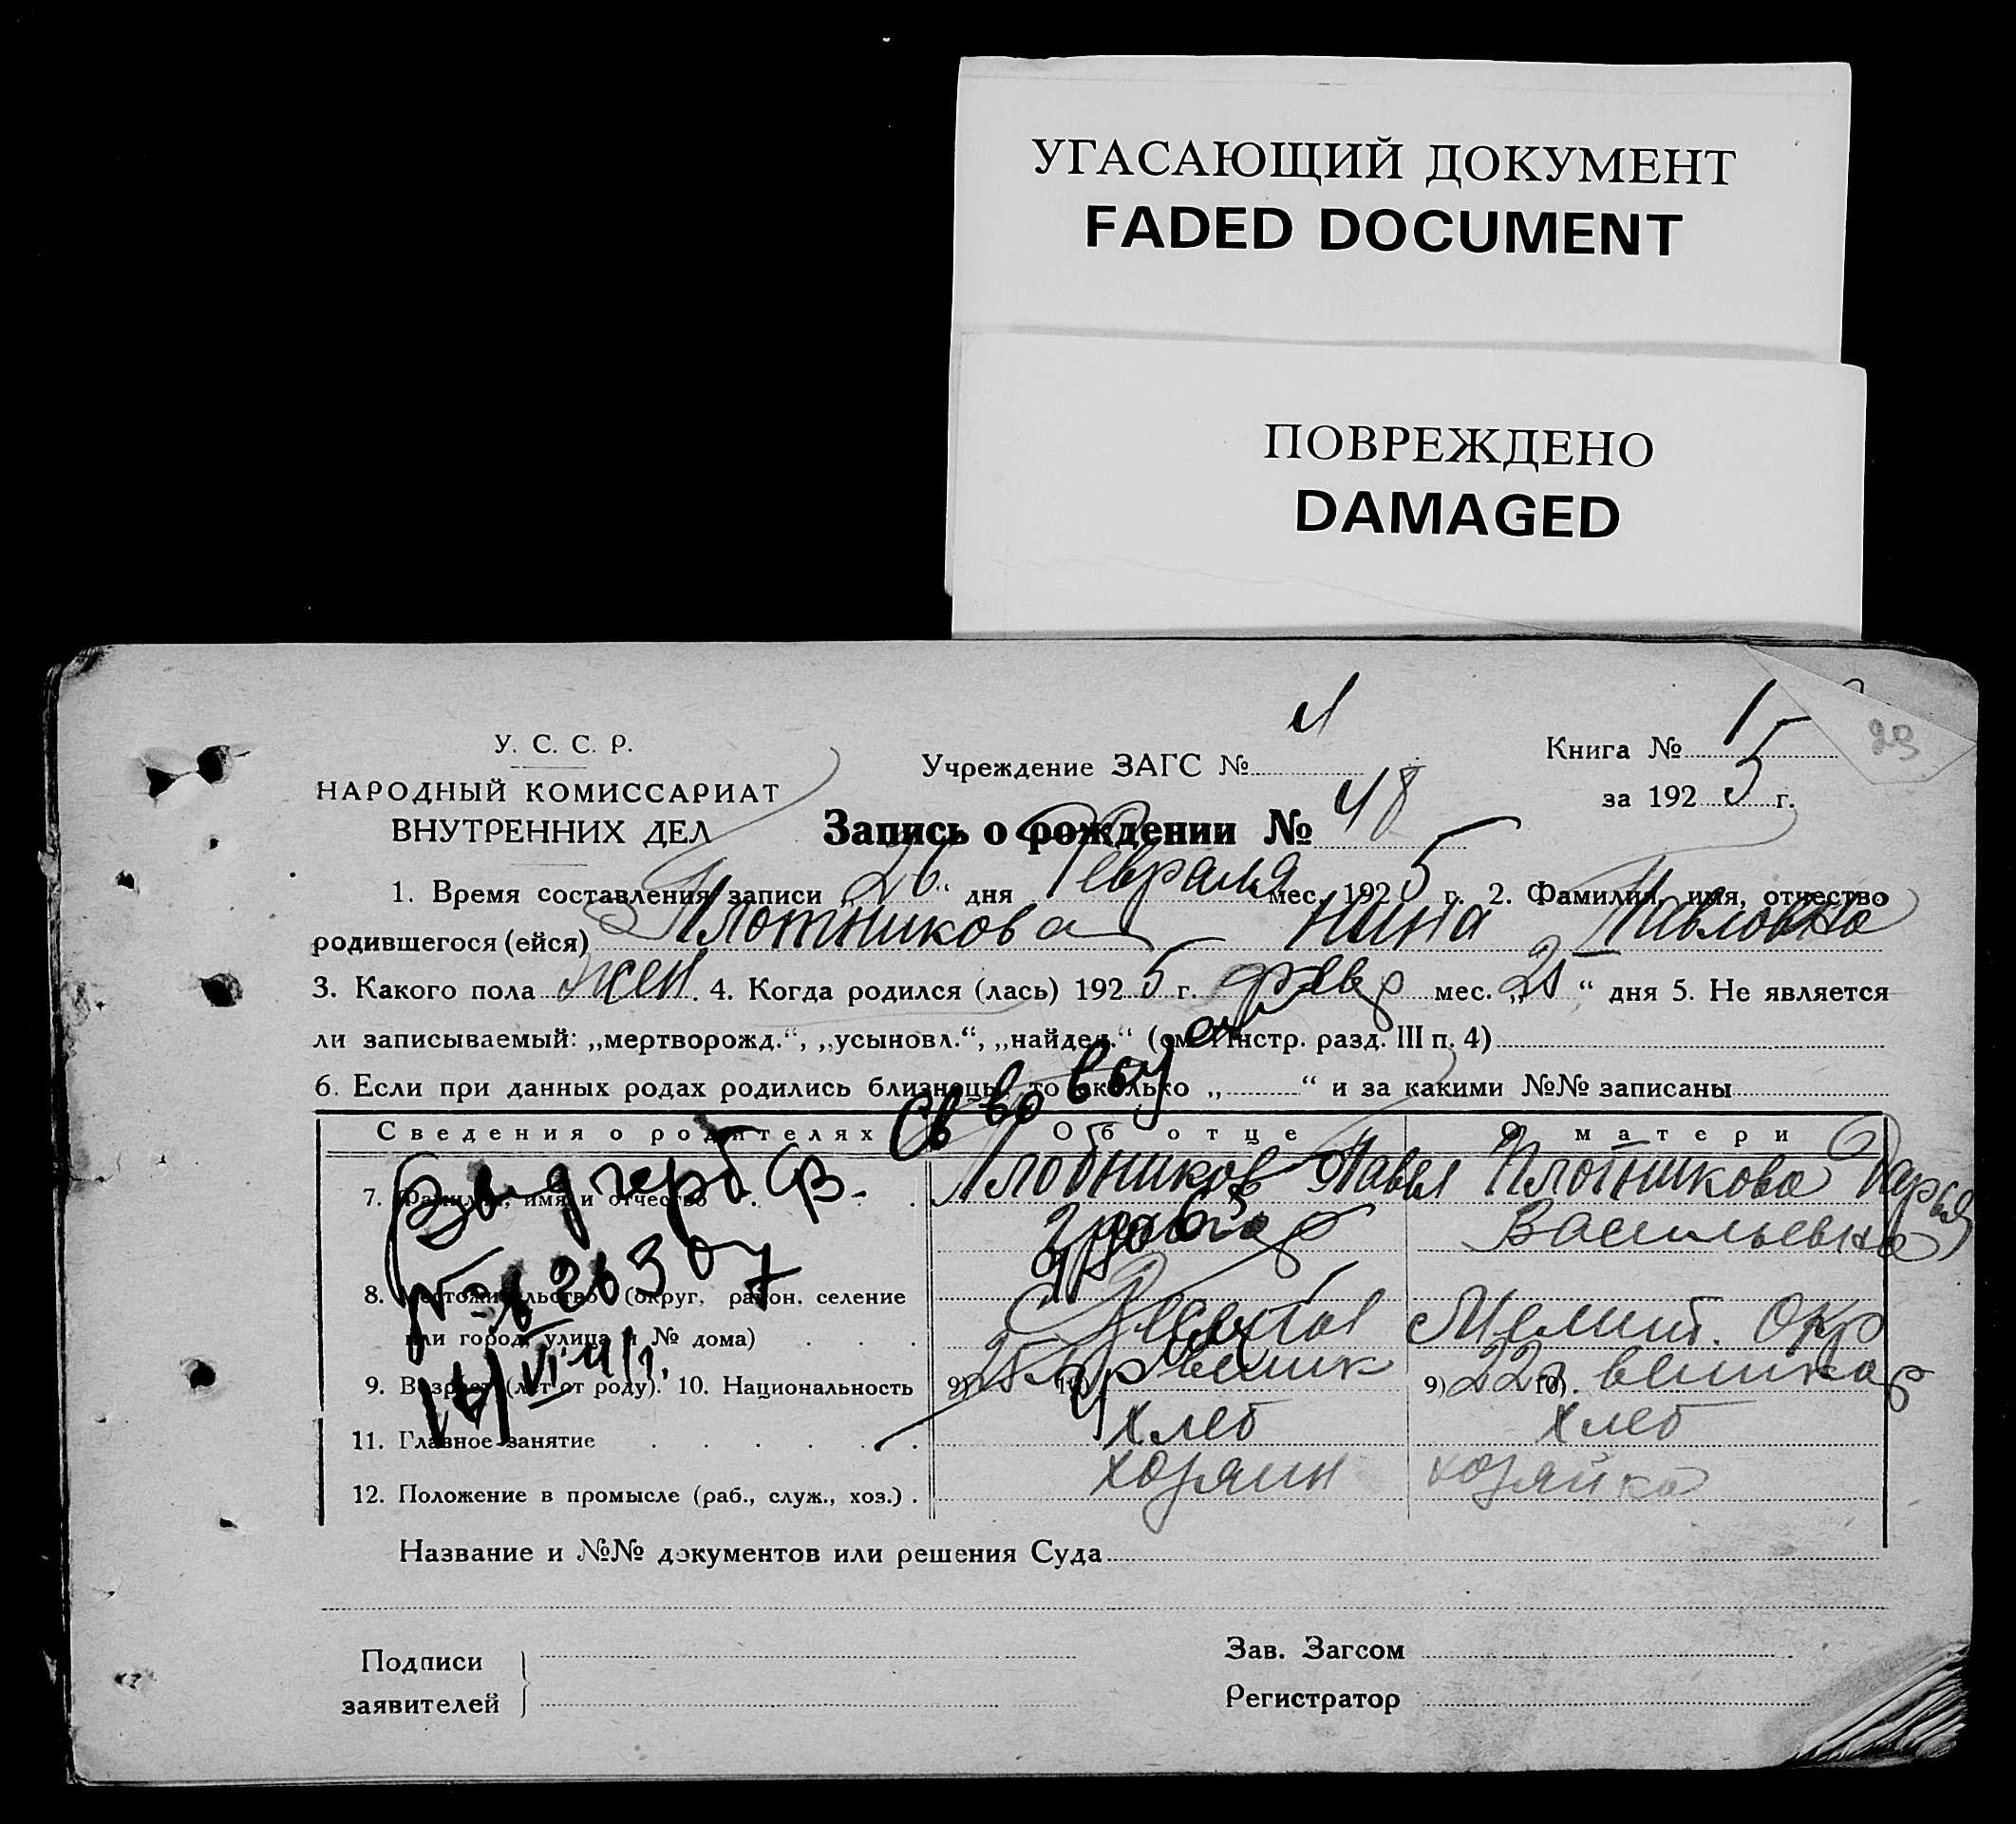 УГАСАЮЩИЙ ДОКУМЕНТ
FADED DOCUMENT
ПОВРЕЖДЕНО
DAMAGED
У. С. С. Р.
НАРОДНЫЙ КОМИССАРИАТ
ВНУТРЕННИХ ДЕЛ
Учреждение ЗАГС №
Книга № 1
за 1925 г.
23
Запись о рождении № 48
1. Время составления записи „26“ дня Февраля мес. 1925 г. 2. Фамилия, имя, отчество
родившегося (ейся) Плотникова Нина Павловна
3. Какого пола жен. 4. Когда родился (лась) 1925 г. февр мес. „25“ дня 5. Не является
ли записываемый: „мертворожд.“, „усыновл.“, „найден.“ (см. Инстр. разд. III п. 4)
6. Если при данных родах родились близнецы, то сколько „ “ и за какими №№ записаны
Сведения о родителях
Об отце
О матери
7. Фамилия, имя и отчество
Плотников Павел
Плотникова Дарья
Васильевна
8. Местожительство (округ, район, селение
или город, улица и № дома)
Мелит. Окр
9. Возраст (лет от роду). 10. Национальность
9) 25 10) великр
9) 22 10) великор
11. Главное занятие
хлеб
хлеб
12. Положение в промысле (раб., служ., хоз.)
хозяин
хозяйка
Название и №№ документов или решения Суда
Подписи
заявителей
Зав. Загсом
Регистратор